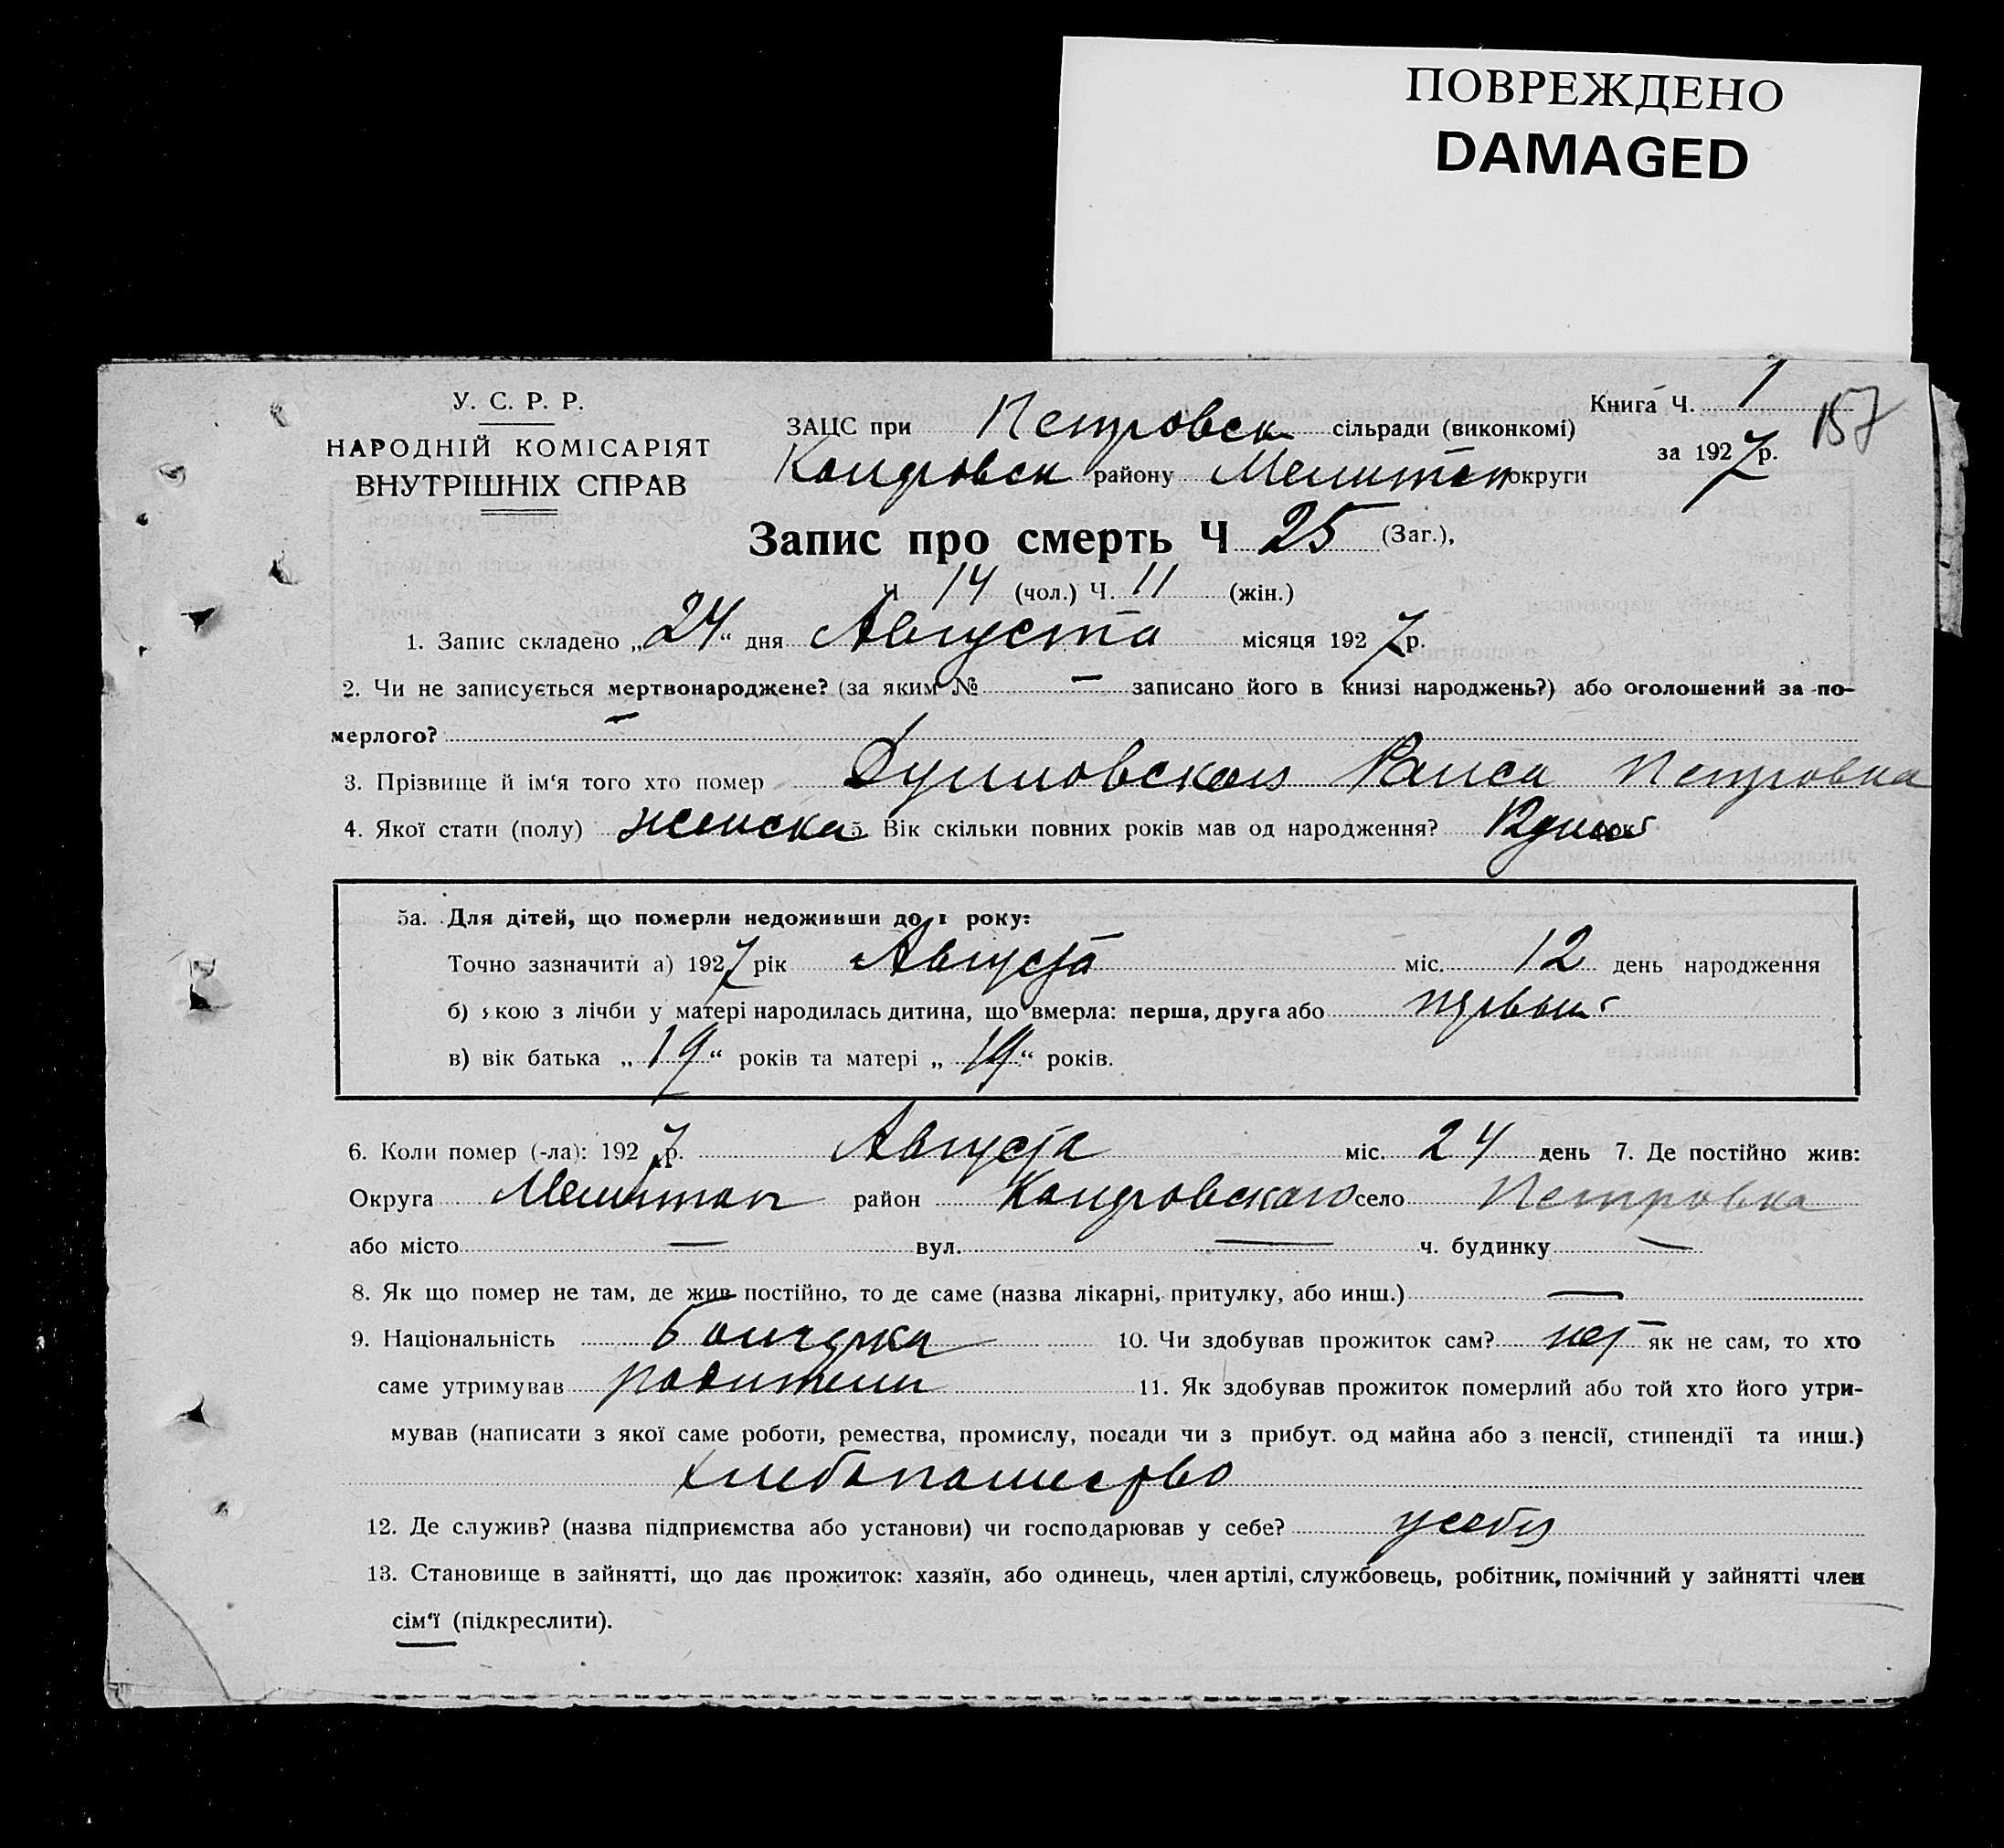 ПОВРЕЖДЕНО
DAMAGED
У. С. Р. Р.
НАРОДНІЙ КОМІСАРІЯТ
ВНУТРІШНІХ СПРАВ
Книга Ч. 1
157
за 1927 р.
ЗАЦС при Петровск сільради (виконкомі)
району округи
Запис про смерть Ч 25 (Заг.),
Ч 14 (чол.) Ч. 11 (жін.)
1. Запис складено „24“ дня Августа місяця 1927 р.
2. Чи не записується мертвонароджене? (за яким № — записано його в книзі народжень?) або оголошений за по-
мерлого? —
3. Прізвище й ім‘я того хто помер Раиса Петровна
4. Якої стати (полу) женска 5. Вік скільки повних років мав од народження? 12 дней
5а. Для дітей, що померли недоживши до 1 року:
Точно зазначити а) 1927 рік Августа міс. 12 день народження
б) якою з лічби у матері народилась дитина, що вмерла: перша, друга або
в) вік батька „19“ років та матері „19“ років.
6. Коли помер (-ла): 1927 р. Августа міс. 24 день 7. Де постійно жив:
Округа район село Петровка
або місто — вул. — ч. будинку —
8. Як що помер не там, де жив постійно, то де саме (назва лікарні, притулку, або инш.) —
9. Національність 10. Чи здобував прожиток сам? нет як не сам, то хто
саме утримував родители 11. Як здобував прожиток померлий або той хто його утри-
мував (написати з якої саме роботи, ремества, промислу, посади чи з прибут. од майна або з пенсії, стипендії та инш.)
хлебопашество
12. Де служив? (назва підприємства або установи) чи господарював у себе? у себя
13. Становище в зайнятті, що дає прожиток: хазяїн, або одинець, член артілі, службовець, робітник, помічний у зайнятті член
сім‘ї (підкреслити).